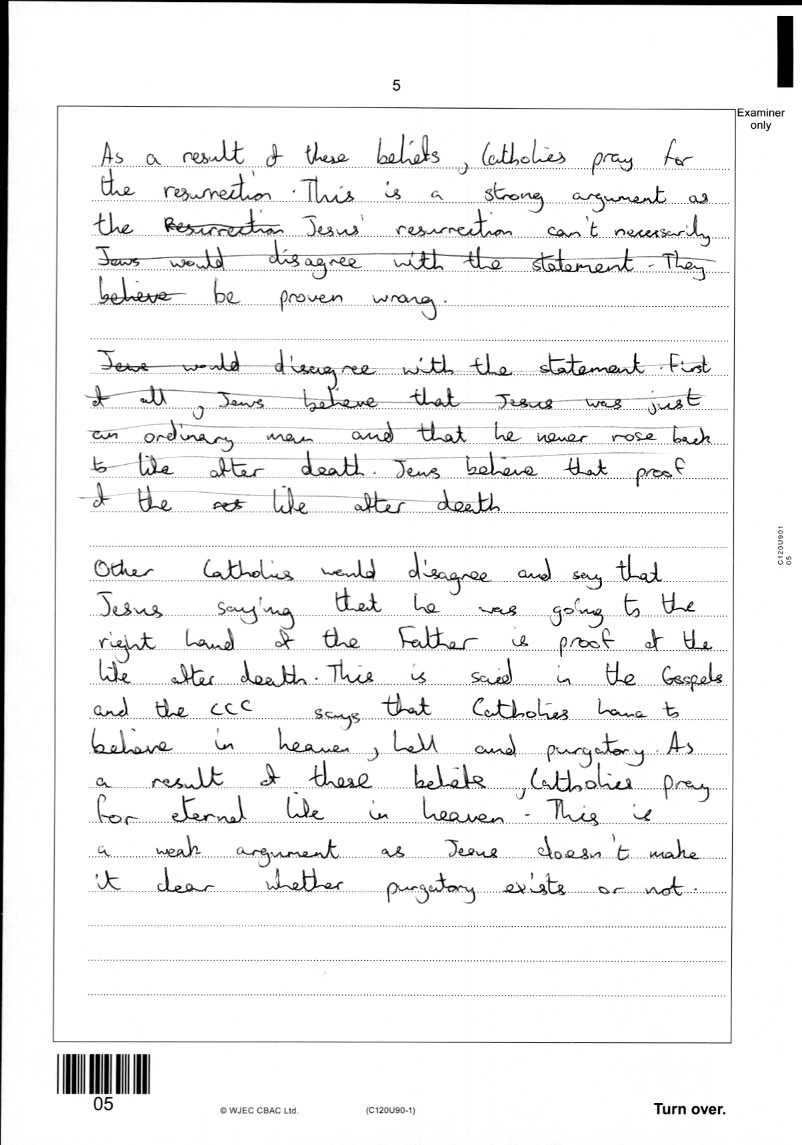 5
Examiner
only
As a result of these beliefs, Catholics pray for
the resurrection. This is a strong argument as
the Resurrection Jesus' resurrection can't necessarily
Jews would disagree with the statement. They
believe be proven wrong.
Jews would disagree with the statement. First
of all, Jews believe that Jesus was just
an ordinary man and that he never rose back
to life after death. Jews believe that proof
of the res life after death
Other Catholics would disagree and say that
Jesus saying that he was going to the
right hand of the Father is proof of the
life after death. This is said in the Gospels
and the CCC says that Catholics have to
believe in heaven, hell and purgatory. As
a result of these beliefs, Catholics pray
for eternal life in heaven. This is
a weak argument as Jesus doesn't make
it clear whether purgatory exists or not.
C120U901
05
05
© WJEC CBAC Ltd.
(C120U90-1)
Turn over.